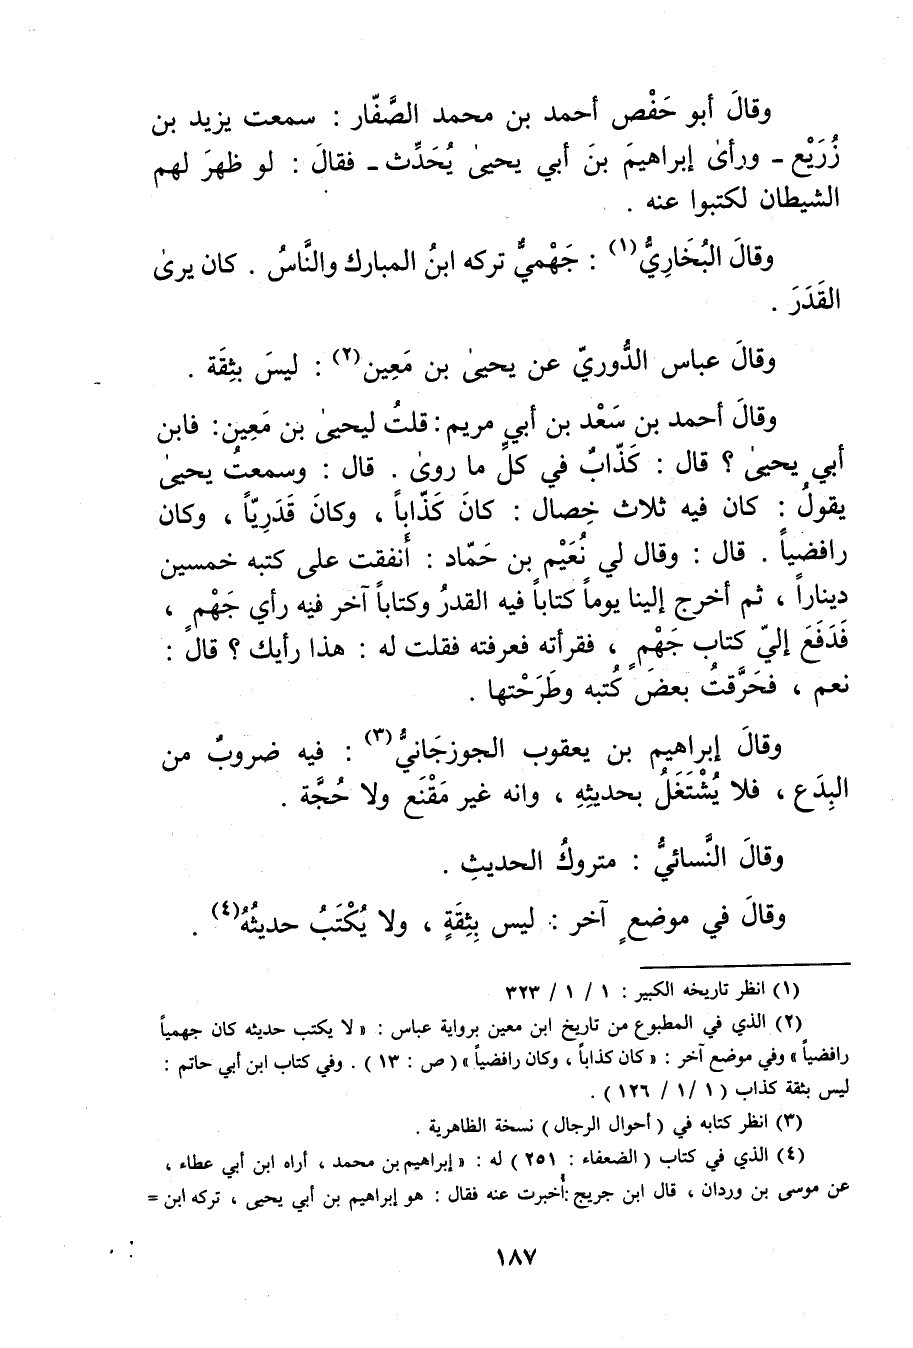 وقالَ أبو حَفْص أحمد بن محمد الصَّفّار : سمعت يزيد بن
زُرَيْع - ورأىٰ إبراهيمَ بنَ أبي يحيىٰ يُحَدِّث - فقالَ : لو ظهرَ لهم
الشيطان لكتبوا عنه .
وقالَ البُخَارِيُّ(١) : جَهْميٌّ تركه ابنُ المبارك والنَّاسُ . كان يرىٰ
القَدَرَ .
وقالَ عباس الدُّوريّ عن يحيىٰ بن مَعِين(٢) : ليسَ بثِقَة .
وقالَ أحمد بن سَعْد بن أبي مريم : قلتُ ليحيىٰ بن مَعِين : فابن
أبي يحيىٰ ؟ قال : كَذّابٌ في كلِّ ما روىٰ . قال : وسمعتُ يحيىٰ
يقولُ : كان فيه ثلاث خِصال : كانَ كَذّاباً ، وكانَ قَدَرِيّاً ، وكان
رافضياً . قال : وقال لي نُعَيْم بن حَمّاد : أَنفقت على كتبه خمسين
ديناراً ، ثم أخرج إلينا يوماً كتاباً فيه القدرُ وكتاباً آخر فيه رأي جَهْمٍ ،
فَدَفَعَ إليّ كتاب جَهْمٍ ، فقرأته فعرفته فقلت له : هذا رأيك ؟ قال :
نعم ، فحَرَّقتُ بعضَ كُتبه وطَرَحْتها .
وقالَ إبراهيم بن يعقوب الجوزجَانيُّ(٣) : فيه ضروبٌ من
البِدَع ، فلا يُشْتَغَلُ بحديثِهِ ، وانه غير مَقْنَع ولا حُجَّة .
وقالَ النَّسائيُّ : متروكُ الحديثِ .
وقالَ في موضعٍ آخر : ليس بِثِقَةٍ ، ولا يُكْتَبُ حديثُهُ(٤) .
(١) انظر تاريخه الكبير : ١ / ١ / ٣٢٣
(٢) الذي في المطبوع من تاريخ ابن معين برواية عباس : « لا يكتب حديثه كان جهمياً
رافضياً » وفي موضع آخر : « كان كذاباً ، وكان رافضياً » ( ص : ١٣ ) . وفي كتاب ابن أبي حاتم :
ليس بثقة كذاب ( ١ /١ / ١٢٦ ) .
(٣) انظر كتابه في ( أحوال الرجال ) نسخة الظاهرية .
(٤) الذي في كتاب ( الضعفاء : ٢٥١ ) له : « إبراهيم بن محمد ، أراه ابن أبي عطاء ،
عن موسى بن وردان ، قال ابن جريج : أُخبرت عنه فقال : هو إبراهيم بن أبي يحيى ، تركه ابن =
١٨٧